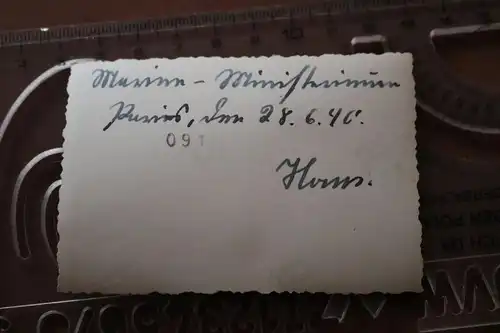 Marine - Ministerium
Paris, den 28.6.40.
091
Hans.